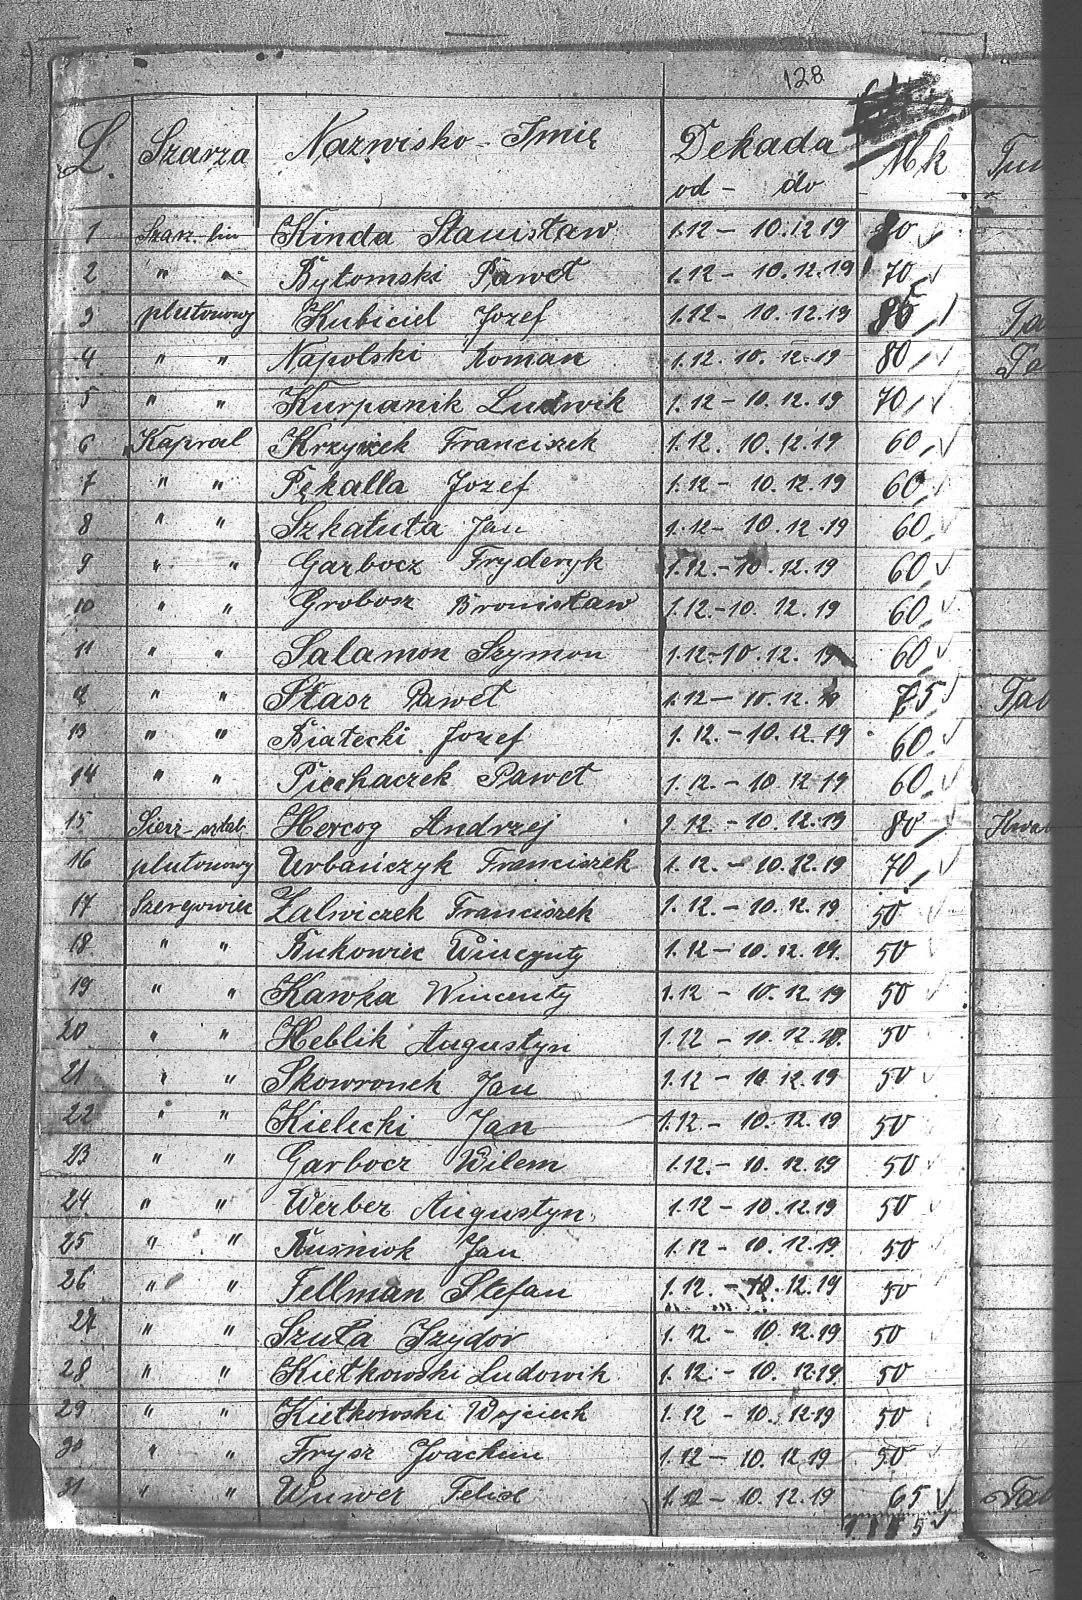 128
L. Szarża Nazwisko - Imię Dekada Mk
od - do
1 Kinda Stanisław 1.12 - 10.12 19 80
2 " " Bytomski Paweł 1.12 - 10.12.19 70
3 plutonowy Kubiciel Jozef 1.12 - 10.12.19 85
4 " " Napolski Roman 1.12. 10.12.19 80
5 " " Kurpanik Ludwik 1.12 - 10.12.19 70
6 Kapral Krzyżek Franciszek 1.12. 10.12.19 60
7 " " Pękalla Jozef 1.12 - 10.12.19 60
8 " " Szkatuła Jan 1.12 - 10.12.19 60
9 " " Garbocz Fryderyk 1.12. - 10.12.19 60
10 " " Grobosz Bronisław 1.12 - 10.12.19 60
11 " " Salamon Szymon 1.12 - 10.12.19 60
" " Stasz Paweł 1.12 - 10.12. 75
13 " " Białecki Jozef 1.12. - 10.12.19 60
14 " " Piechaczek Paweł 1.12. - 10.12 19 60
15 Sierż - sztab Hercog Andrzej 1.12 - 10.12.19 80
16 plutonowy Urbańczyk Franciszek 1.12. - 10.12.19 70
17 Szeregowiec Zalwiczek Franciszek 1.12. - 10.12.19 50
18. " " Bukowiec Wincynty 1.12 - 10.12.19. 50
19 " " Kawka Wincenty 1.12 - 10.12.19 50
20 " " Heblik Augustyn 1.12 - 10.12. 50
21 " " Skowronek Jan 1.12 - 10.12.19 50
22 " " Kielecki Jan 1.12. - 10.12.19 50
23 " " Garbocz Wilem 1.12. - 10.12.19 50
24. " " Werber Augustyn 1.12 - 10.12.19 50
25 " " Kuśniok Jan 1.12 - 10.12.19. 50
26 " " Fellman Stefan 1.12. - 10.12.19 50
27 " " Szuła Izydor 1.12 - 10.12.19 50
28 " " Kiełkowski Ludowik 1.12. - 10.12.19 50
29 " " Kiełkowski Wojciech 1.12 - 10.12.19 50
30 " " Frysz Joachim 1.12 - 10.12.19 50
31 " " Wuwer Felix 1.12 - 10.12.19 65